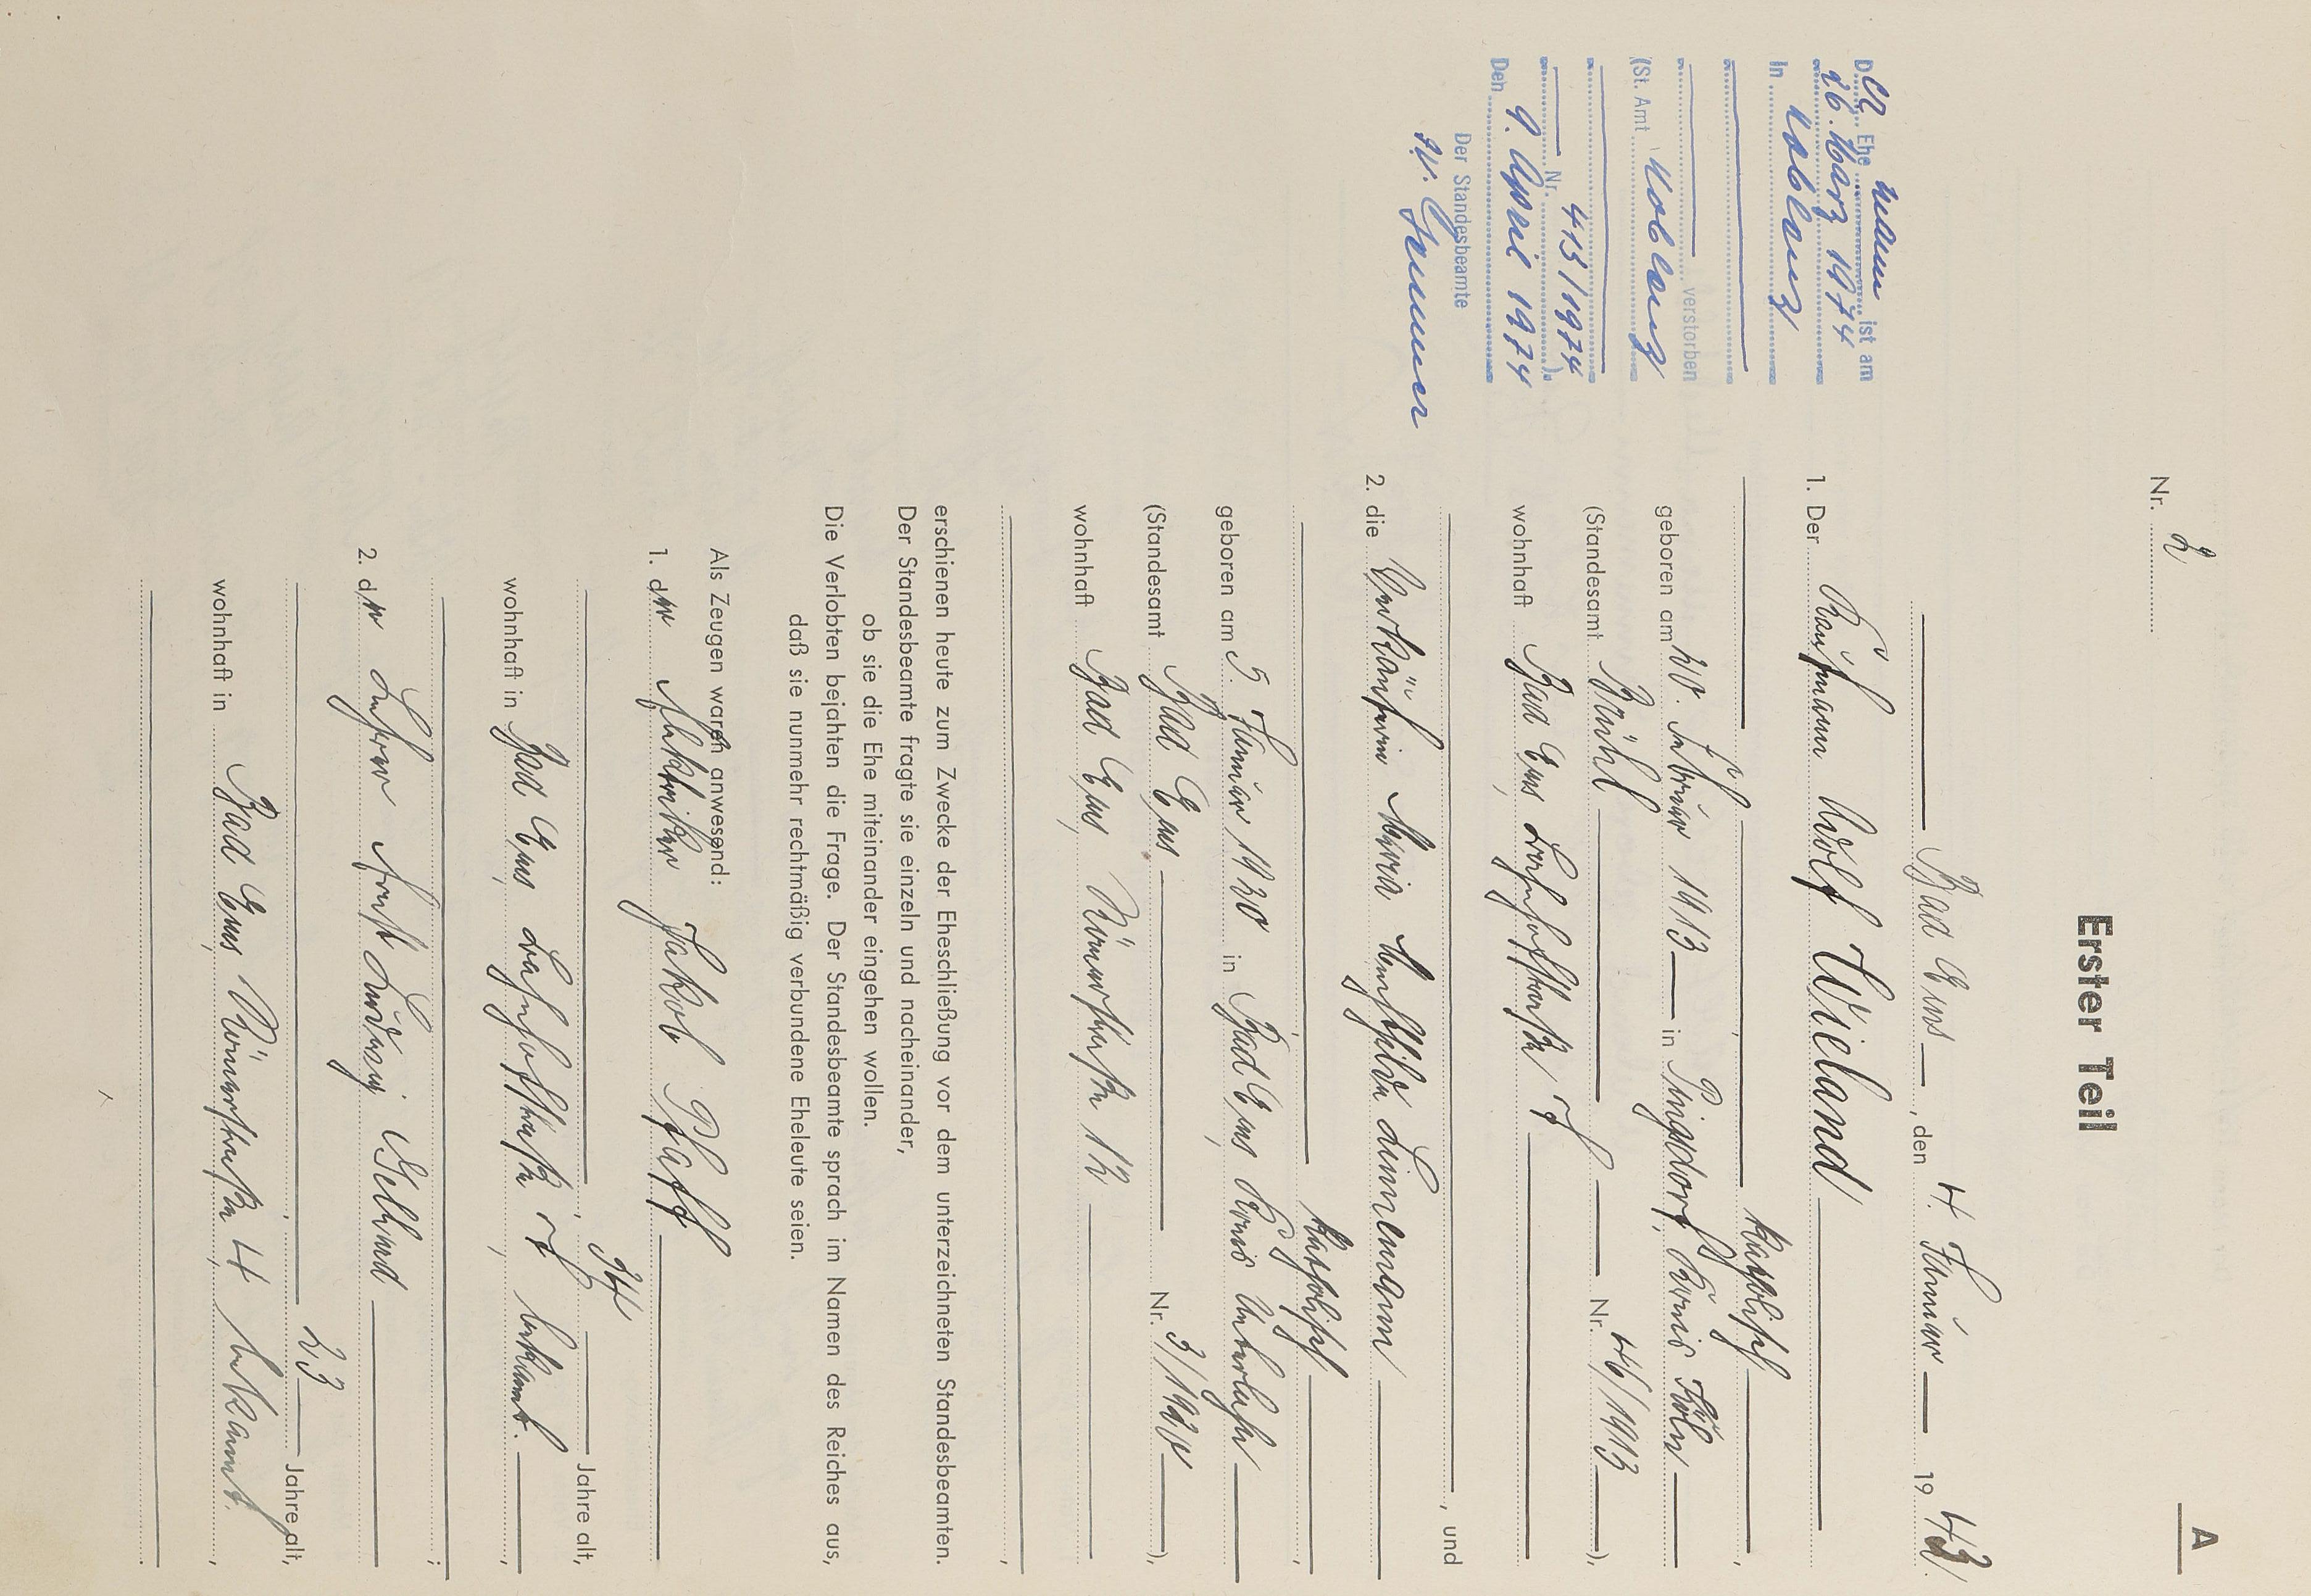 A
Nr. 2
Erster Teil
Bad Ems, den 4. Januar 1943
1. Der Kaufmann Wolf Wieland
katholisch,
geboren am 20. Februar 1913 in Pingsdorf, Kreis Köln
(Standesamt Brühl Nr. 46/1913),
wohnhaft Bad Ems, Bahnhofstraße 7
, und
2. die Verkäuferin Maria Mechthilde Linnemann
katholisch,
geboren am 5. Januar 1920 in Bad Ems, Kreis Unterlahn
(Standesamt Bad Ems Nr. 3/1920),
wohnhaft Bad Ems, Römerstraße 12
,
erschienen heute zum Zwecke der Eheschließung vor dem unterzeichneten Standesbeamten.
Der Standesbeamte fragte sie einzeln und nacheinander,
ob sie die Ehe miteinander eingehen wollen.
Die Verlobten bejahten die Frage. Der Standesbeamte sprach im Namen des Reiches aus,
daß sie nunmehr rechtmäßig verbundene Eheleute seien.
Als Zeugen waren anwesend:
1. der Elektriker Jakob Pfaff
, 34 Jahre alt,
wohnhaft in Bad Ems, Bahnhofstraße 7, bekannt.,
;
2. der Lehrer Ernst Ludwig Gelhard
, 23 Jahre alt,
wohnhaft in Bad Ems, Römerstraße 4, bekannt.,
.
Der Ehemann ist am
26. März 1974
In Koblenz
verstorben
(St. Amt Koblenz
Nr. 413/1974).
Den 9. April 1974
Der Standesbeamte
I.V.